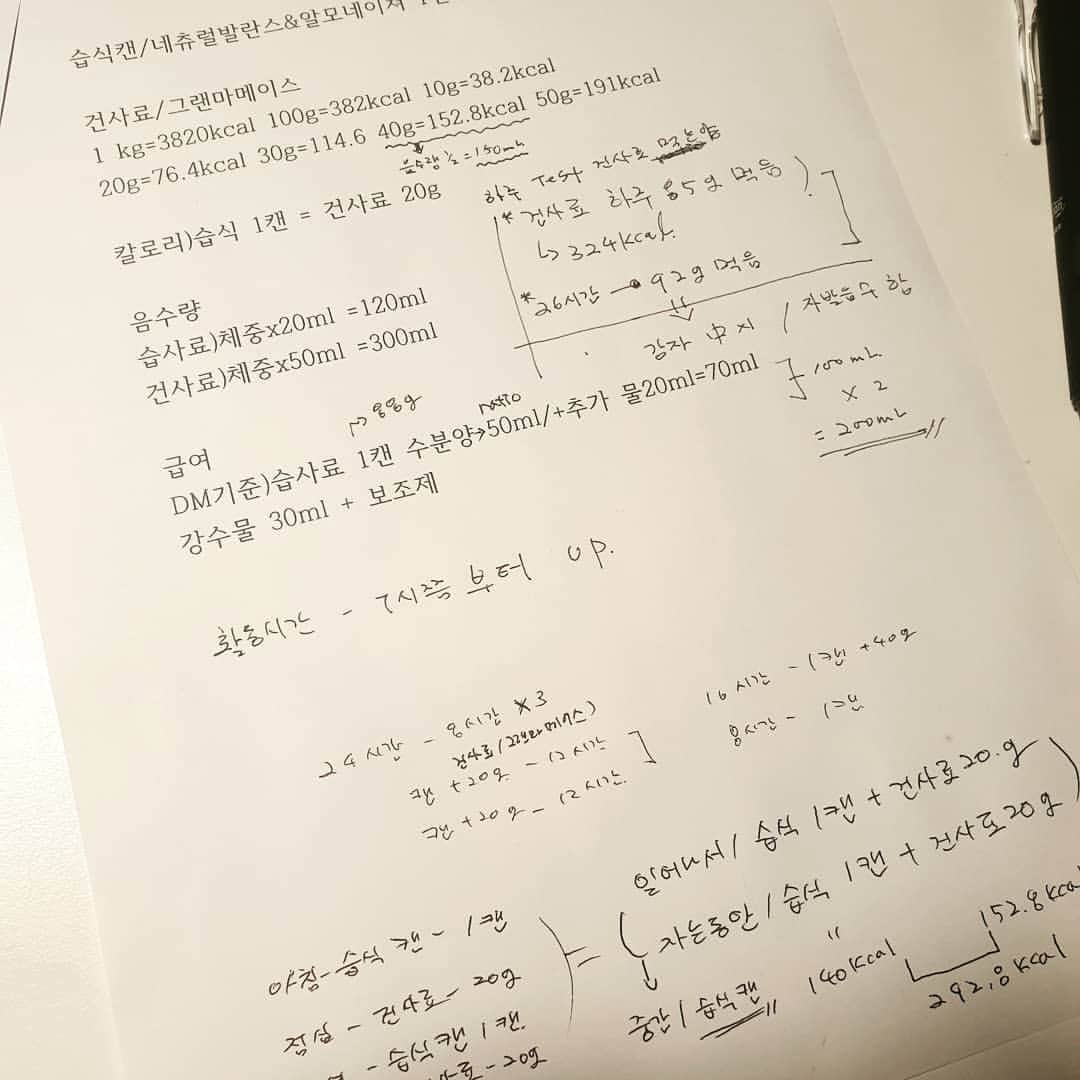 습식캔/네츄럴발란스&알모네이쳐
건사료/그랜마메이스
1 kg=3820kcal 100g=382kcal 10g=38.2kcal
20g=76.4kcal 30g=114.6 40g=152.8kcal 50g=191kcal
음수량 ½ = 150ml
칼로리)습식 1캔 = 건사료 20g
하루 Test 건사료
* 건사료 하루 85g 먹음
↳ 324kcal.
* 26시간 → 92g 먹음
감자 中지 / 자발음수 함
음수량
습사료)체중x20ml =120ml
건사료)체중x50ml =300ml
급여
→ 88g
ratio
DM기준)습사료 1캔 수분양→50ml/+추가 물20ml=70ml
강수물 30ml + 보조제
100ml
x 2
= 200ml
활동시간 - 7시쯤 부터 up.
24시간 - 8시간 x3
건사료/그랜마메이스)
캔 +20g - 12시간
캔 +20g - 12시간.
16시간 - 1캔 +40g
8시간 - 1캔
아침 - 습식 캔 - 1캔
점심 - 건사료 - 20g
- 습식캔 1캔.
사료 - 20g
=
일어나서 / 습식 1캔 + 건사료 20.g
자는동안 / 습식 1캔 + 건사료 20g
중간 / 습식캔
140kcal
152.8kcal
292.8kcal